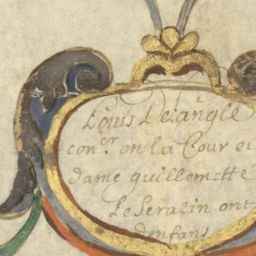 Louis De langle
con.er en la Cour et
dame guillemette
Le Serazin ont
d'enfans